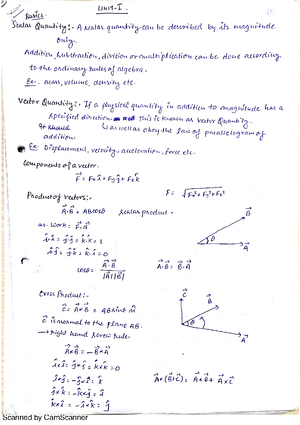 UNIT-I
Basics:
Scalar Quantity:- A scalar quantity can be described by its magnitude
only.
Addition, subtraction, division or multiplication can be done according
to the ordinary rules of algebra.
Ex:- mass, volume, density etc.
Vector Quantity:- If a physical quantity in addition to magnitude has a
specified direction this is known as Vector Quantity.
It should as well as obey the law of parallelogram of
addition.
Ex Displacement, velocity, acceleration, force etc.
Components of a vector.
F⃗ = Fxî + Fyĵ + Fzk̂ F = √Fx²+Fy²+Fz²
Product of vectors:-
A⃗·B⃗ = ABcosθ scalar product.
as work = F⃗·d⃗
î·î = ĵ·ĵ = k̂·k̂ = 1
î·ĵ = ĵ·k̂ = k̂·î = 0
cosθ = A⃗·B⃗ / |A⃗||B⃗| A⃗·B⃗ = B⃗·A⃗
B⃗
θ
A⃗
Cross Product:-
C⃗ = A⃗×B⃗ = AB sinθ n̂
C⃗ is normal to the plane AB.
→ right hand screw rule.
A⃗×B⃗ = -B⃗×A⃗
î×î = ĵ×ĵ = k̂×k̂ = 0
î×ĵ = -ĵ×î = k̂
ĵ×k̂ = -k̂×ĵ = î
k̂×î = -î×k̂ = ĵ
A⃗×(B⃗+C⃗) = A⃗×B⃗ + A⃗×C⃗
C⃗
B⃗
θ
A⃗
Scanned by CamScanner